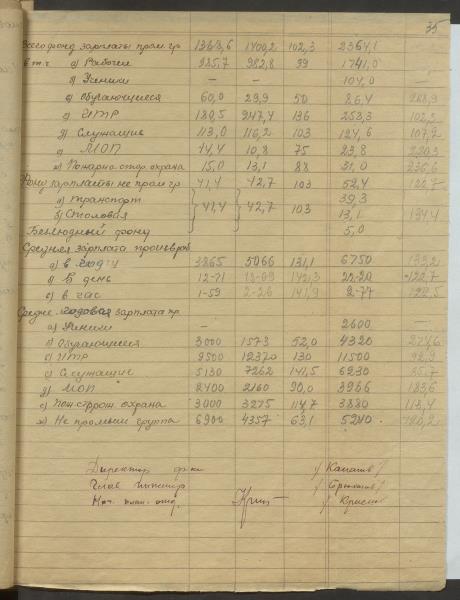 35
Всего фонд зарплаты пром. гр 1368,6 1400,2 102,3 2364,1
в т.ч. а) Рабочие 985,7 982,8 99 1741,0
б) Ученики — — 104,0 —
в) Обучающиеся 60,0 29,9 50 86,4
г) ИТР 180,5 247,4 136 253,3
д) Служащие 113,0 116,2 103 124,6 107,2
е) МОП 14,4 10,8 75 23,8
ж) Пожарно стор. охрана 15,0 13,1 88 31,0 236,6
Фонд зарплаты не пром гр 41,4 42,7 103 52,4
а) транспорт 39,3
б) Столовая 41,4 42,7 103 13,1
Безлюдный фонд 5,0
Средняя зарплата
а) в году 3865 5066 131,1 6750 133,2
б) в день 12-71 142,3 22-20
в) в час 1-59 2-26 141,9 2-77 122,5
Средне-годовая зарплата пр.
а) Ученики — 2600 —
б) Обучающиеся 3000 1573 52,0 4320
в) ИТР 9500 12370 130 11500 92,9
г) Служащие 5130 7262 141,5 6230 85,7
д) МОП 2400 2160 90,0 3966 183,6
е) Пож строж. охрана 3000 3275 114,7 3880 118,4
ж) Не промыш группа 6900 4357 63,1 5240 120,2
Директор ф-ки
Глав. инженер
Нач. план. отд.